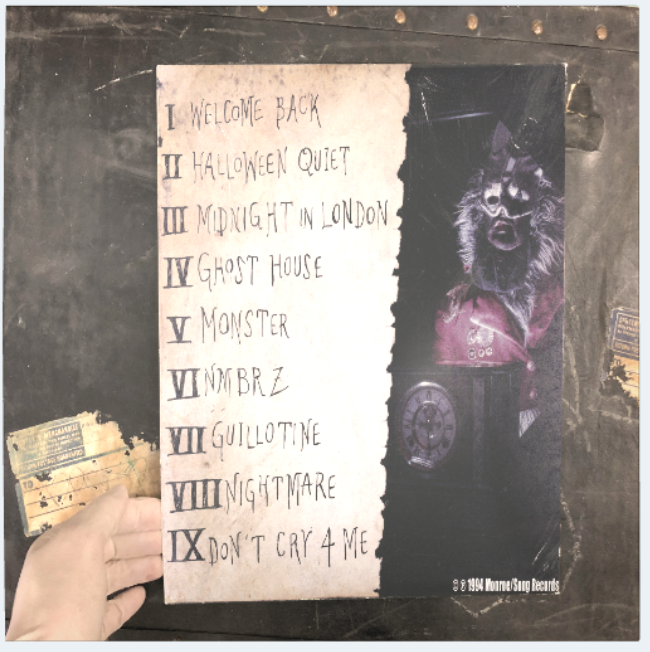 I WELCOME BACK
II HALLOWEEN QUIET
III MIDNIGHT IN LONDON
IV GHOST HOUSE
V MONSTER
VI NMBRZ
VII GUILLOTINE
VIIII NIGHTMARE
IX DON'T CRY 4 ME
© ℗ 1994 Monroe/Song Records
TO